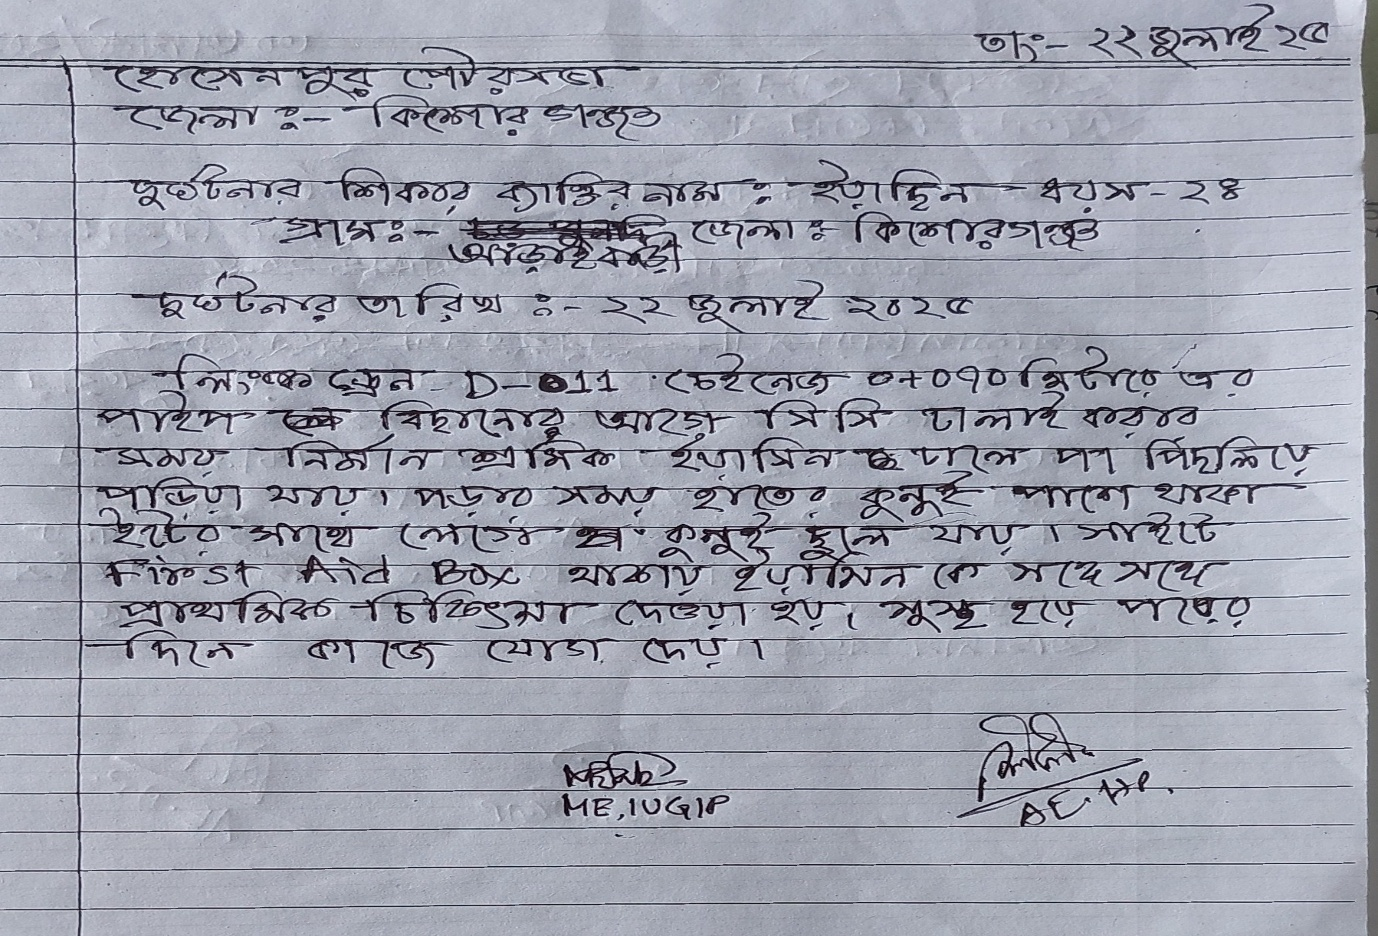 তাং:- ২২ জুলাই ২৫
হোসেনপুর পৌরসভা
জেলা :- কিশোরগঞ্জ
দুর্ঘটনার শিকার ব্যাক্তির নাম : ইয়াছিন বয়স - ২৪
গ্রাম :- জেলা : কিশোরগঞ্জ
আড়াইবাড়ী
দুর্ঘটনার তারিখ :- ২২ জুলাই ২০২৫
লিংক ড্রেন D-011 চেইনেজ ০+০৭০ মিটারে এর
পাইপ বিছানোর আগে সিসি ঢালাই করার
সময় নির্মান শ্রমিক ইয়াসিন পা পিছলিয়ে
পড়িয়া যায়। পড়ার সময় হাতের কুনুই পাশে থাকা
ইটের সাথে লেগে কুনুই ছুলে যায়। সাইটে
First Aid Box থাকায় ইয়াসিন কে সাথে সাথে
প্রাথমিক চিকিৎসা দেওয়া হয়। সুস্থ হয়ে পরের
দিনে কাজে যোগ দেয়।
ME, IUGIP